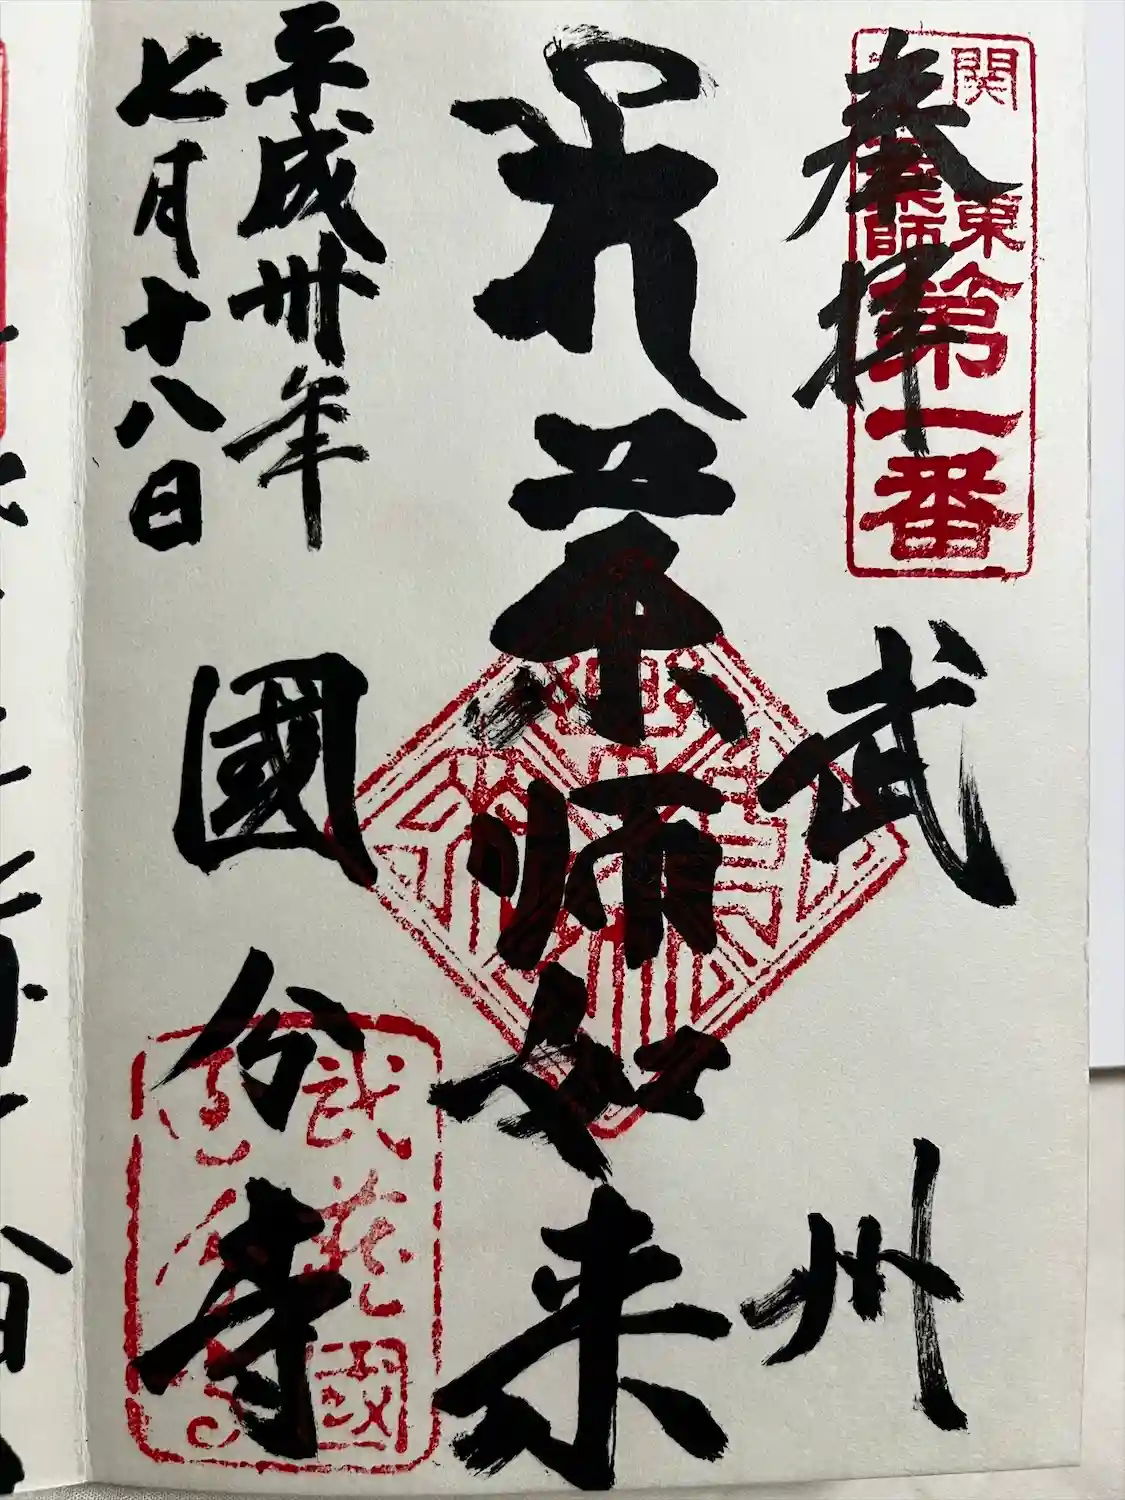 奉拝
関東
薬師
第一番
武州
薬师如来
國分寺
平成卅年
七月十八日